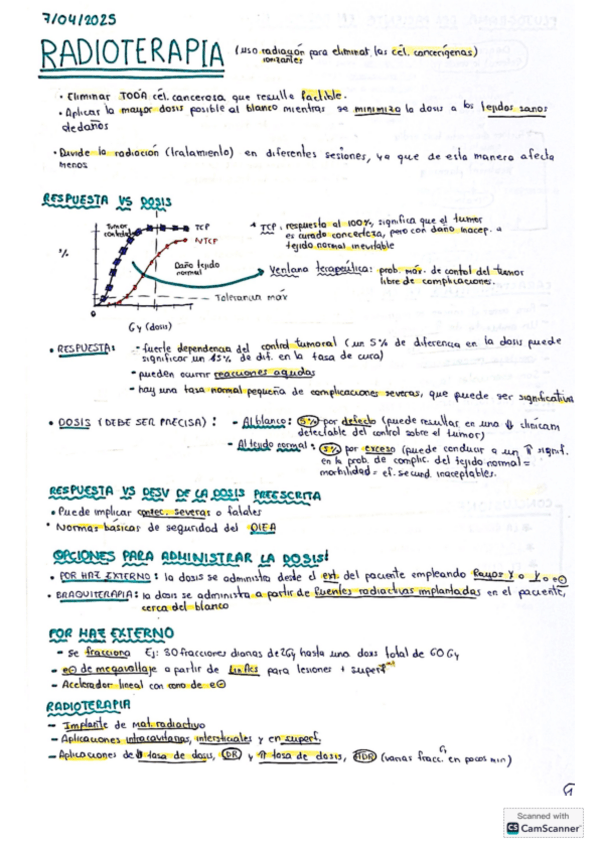 7/04/2025
RADIOTERAPIA (uso radiación ionizantes para eliminar las cél. cancerígenas)
· Eliminar TODA cél. cancerosa que resulte factible.
· Aplicar la mayor dosis posible al blanco mientras se minimiza la dosis a los tejidos sanos
aledaños
· Divide la radiación (tratamiento) en diferentes sesiones, ya que de esta manera afecta
menos
RESPUESTA VS DOSIS
Tumor control
TCP
NTCP
%
Daño tejido
normal
Tolerancia máx
0
Gy (dosis)
TCP: respuesta al 100%, significa que el tumor
es curado con certeza, pero con daño inacep. a
tejido normal inevitable
Ventana terapeútica: prob. máx. de control del tumor
libre de complicaciones.
· RESPUESTA: - fuerte dependencia del control tumoral (un 5% de diferencia en la dosis puede
significar un 15% de dif. en la tasa de cura)
- pueden ocurrir reacciones agudas
- hay una tasa normal pequeña de complicaciones severas, que puede ser significativa
· DOSIS (DEBE SER PRECISA): - Al blanco: 5% por defecto (puede resultar en una ↓ clínicam
detectable del control sobre el tumor)
- Al tejido normal: 5% por exceso (puede conducir a un ↑ signif.
en la prob. de complic. del tejido normal =
morbilidad = ef. secund. inaceptables.
RESPUESTA VS DESV DE LA DOSIS PREESCRITA
· Puede implicar consec. severas o fatales
· Normas básicas de seguridad del OIEA
OPCIONES PARA ADMINISTRAR LA DOSIS!
· POR HAZ EXTERNO: la dosis se administra desde el ext. del paciente empleando Rayos X o γ o e⊖
· BRAQUITERAPIA: la dosis se administra a partir de fuentes radiactivas implantadas en el paciente,
cerca del blanco
POR HAZ EXTERNO
- Se fracciona Ej: 30 fracciones diarias de 2Gy hasta una dosis total de 60 Gy
- e⊖ de megavoltaje a partir de LinAcs para lesiones + superf
- Acelerador lineal con cono de e⊖
RADIOTERAPIA
- Implante de mat. radiactivo
- Aplicaciones intracavitarias, intersticiales y en superf.
- Aplicaciones de ↓ tasa de dosis, DR y ↑ tasa de dosis, HDR (varias fracc. en pocos min)
Scanned with
CS CamScanner